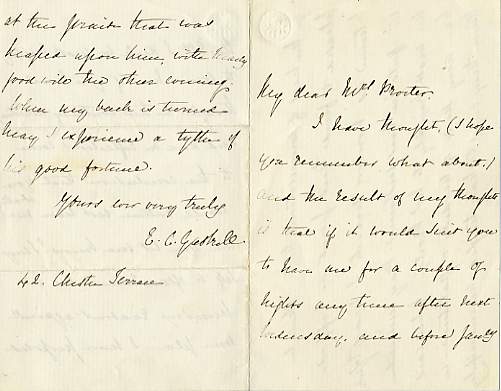 My dear Mrs Procter.
I have thought, (I hope
you remember what about,)
and the result of my thoughts
is that if it would suit you
to have me for a couple of
nights any time after next
Wednesday, and before Jany
at the praise that was
heaped upon him, with
good will the other evening.
When my back is turned
may I experience a tythe of
his good fortune.
Yours very truly
E. C. Gaskell
42. Chester Terrace